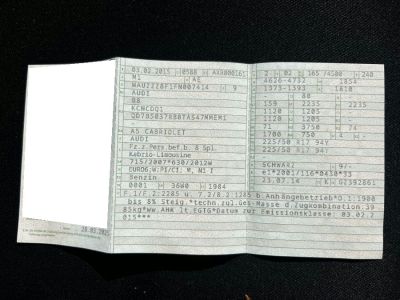 03.02.2015 0588 AXR000165
M1 AE
WAUZZZ8F1FN007414 9
AUDI
B8
KCNCDQ1
A5 CABRIOLET
AUDI
Fz.z.Pers.bef.b. 8 Spl.
Kabrio-Limousine
715/2007*630/2012W
EURO6;W;PI/CI; M, N1 I
Benzin
0001 36W0 1984
2 02 165 /4500 240
4626-4732 1854
1373-1393 1810
80
159 2235 2235
1120 1205
1120 1205
71 3750 74
1700 750 4
225/50 R17 94Y
225/50 R17 94Y
SCHWARZ 9/-
e1*2001/116*0430*33
23.07.14 K
F.1/F.2:2285 u. 7.2/8.2:1285 b.Anhängebetrieb*O.1:1900
bis 8% Steig.*techn.zul.Ges-Masse d.Zugkombination:39
85kg*Ww.AHK lt.EGTG*Datum zur Emissionsklasse: 03.02.2
015***